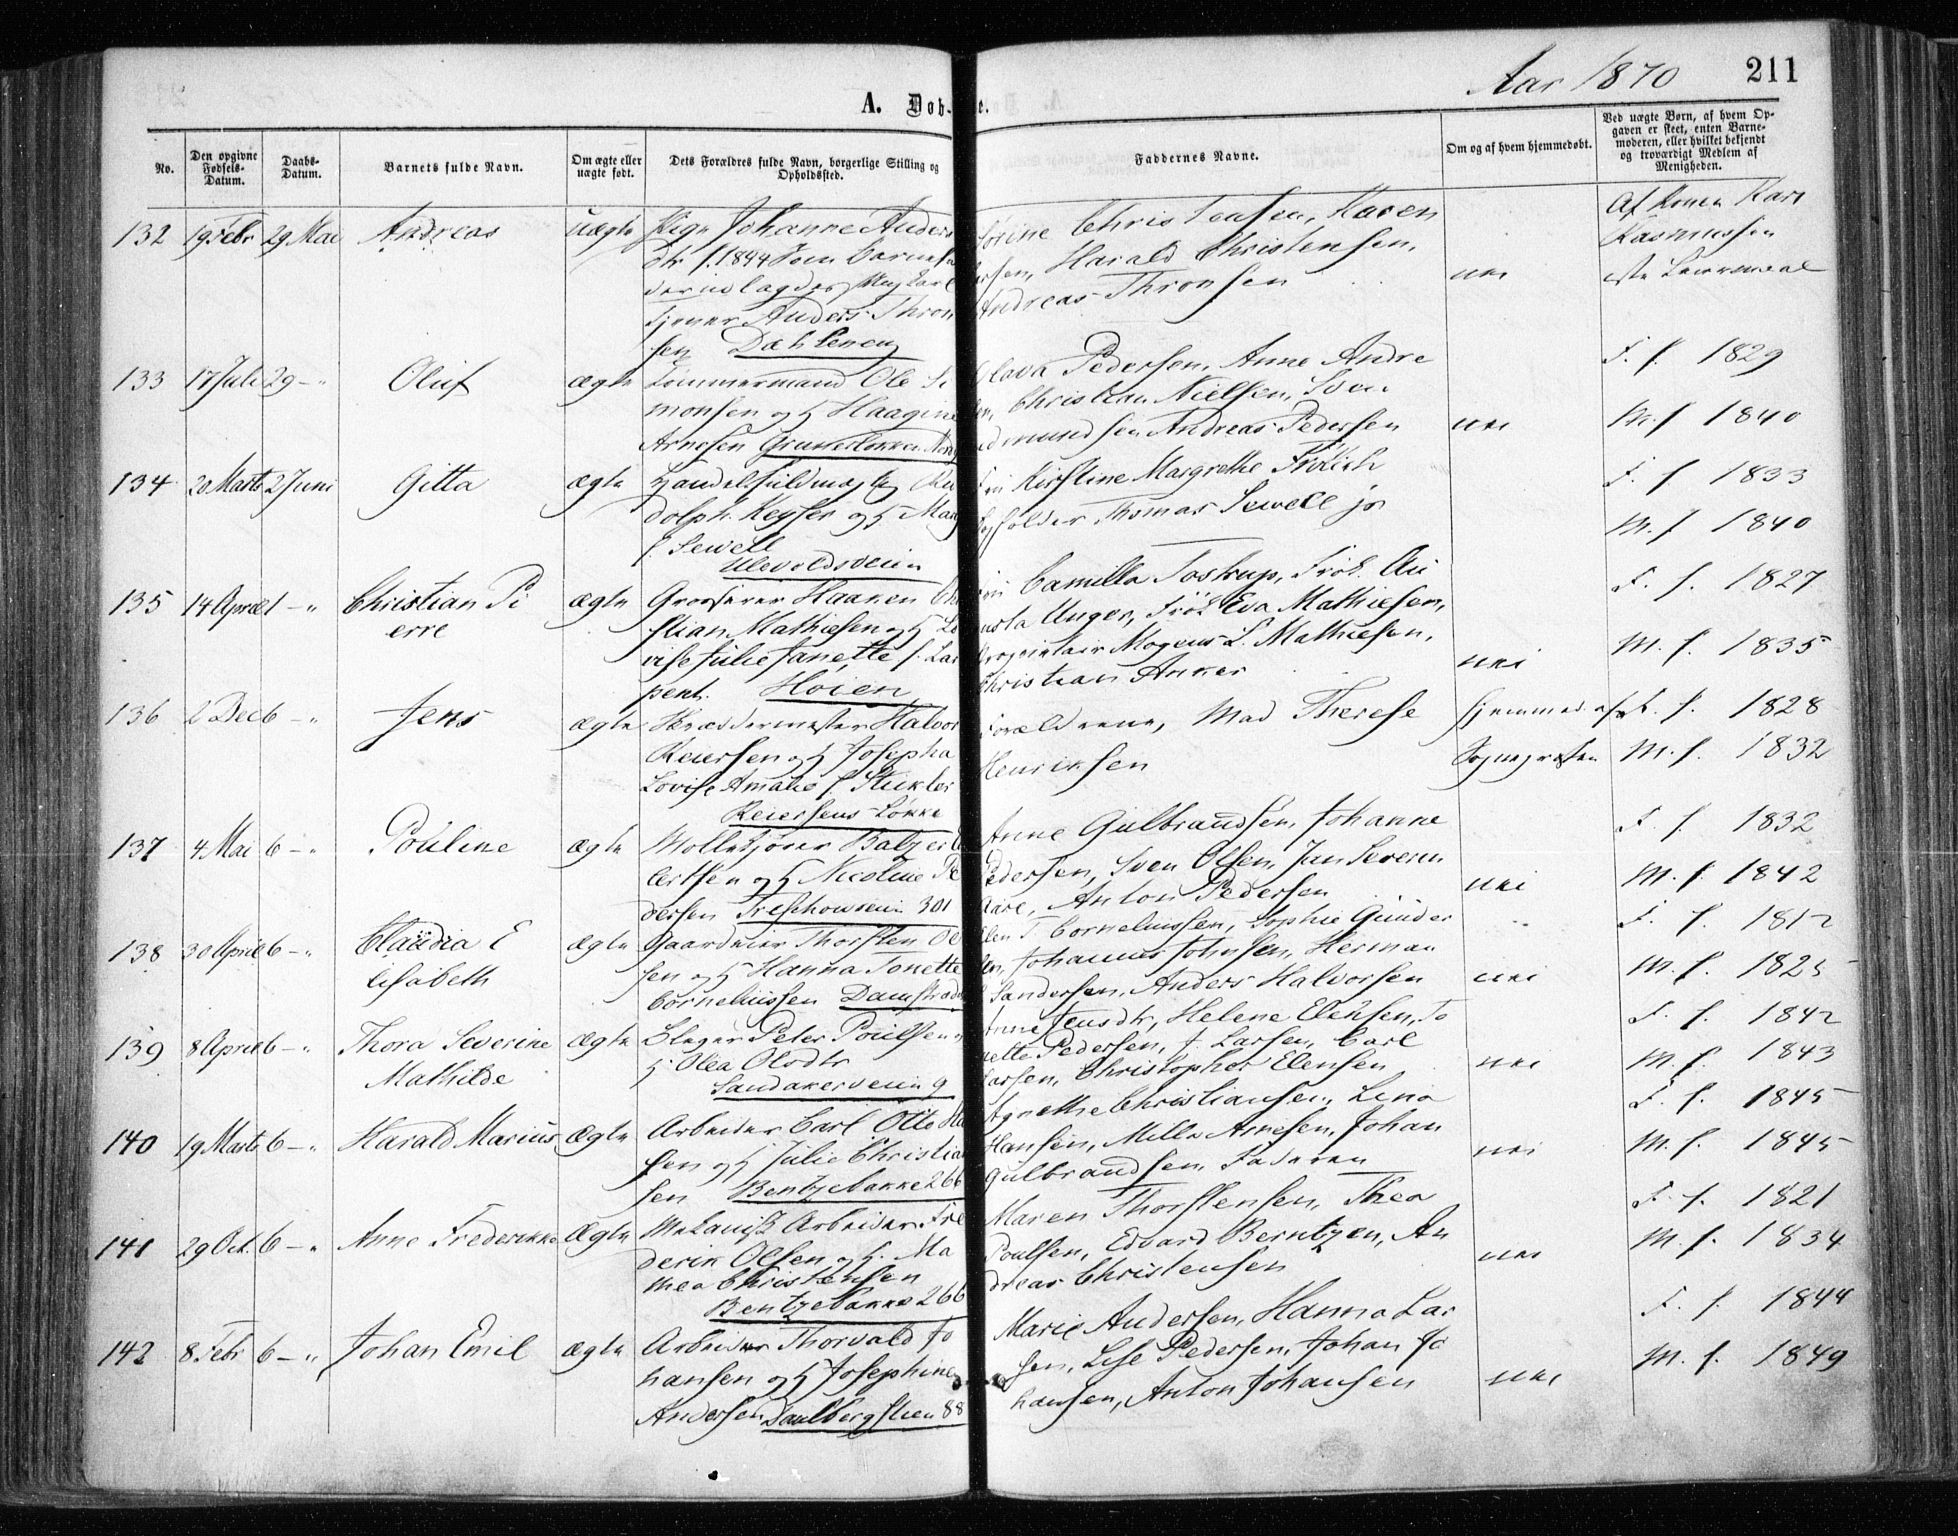 Aar 1870 211
A. Døb- e.
No.
Den opgivne Fødsels-Datum.
Daabs-Datum.
Barnets fulde Navn.
Om ægte eller uægte født.
Dets Forældres fulde Navn, borgerlige Stilling og Opholdssted.
Faddernes Navne.
Om og af hvem hjemmedøbt.
Ved uægte Børn, af hvem Opgaven er skeet, enten Barnemoderen, eller hvilket bekjendt og troværdigt Medlem af Menigheden.
132 19 Febr 29 Mai Andreas uægte Pige Johanne Anders
dtr f. 1844 som Barnefa
Anders Thron
sen Dæhlenen
Christensen, Karen
Harald Christensen,
Andreas Thronsen
nei
Af Konen Kari
Rasmussen
133 17 Juli 29 - " Oluf ægte Tømmermand Ole Si
monsen og H Haagine
Arnesen Grünerløkken
Olava Pedersen, Anne Andre
Christian Nielsen, Sven
Andreas Pedersen
nei
F. f. 1829
M. f. 1840
134 20 Marts 2 Juni Gitta ægte Handelsfuldmægtig Ru
dolph Keyser og H Mar
f. Sewell
Ulevoldsveien
Kirstine Margrethe Frölich
Thomas Sewell jr
F. f. 1833
M. f. 1840
135 14 April 1 - " Christian Pi
erre
ægte Grosserer Haaken Chri
stian Mathiesen og H Lo
vise Julie Janette f. Lar
pent. Høien
Camilla Tostrup, Frök. Au
gusta Unger, Frök Eva Mathiesen,
Proprietair Mogens L. Mathiesen,
Christian Anker
nei
F. f. 1827
M. f. 1835
136 2 Dec 6 - " Jens ægte Skræddermester Halvor
Reiersen og H Josepha
Lovise Amalie f. Stickler
Reiersens Løkke
Forældrene, Mad Therese
Henriksen
Hjemmed. af
Sognepræsten
F. f. 1828
M. f. 1832
137 4 Mai 6 - " Pouline ægte Møllekjører Baltzer
ertsen og H Nicoline Pe
dersen Treschowsvei 301
Anne Gulbrandsen, Johanne
Pedersen, Sven Olsen, Jan Severin
Anton Pedersen
nei
F. f. 1832
M. f. 1842
138 30 April 6 - " Claudia E
lisabeth
ægte Gaardeier Thorsten Ol
sen og H Hanna Tonette
Corneliussen Damstræde
Ellen T Corneliussen, Sophie Gunder
sen, Johannes Johnsen, Herman
Sandersen, Anders Halvorsen
nei
F. f. 1812
M. f. 1825
139 8 April 6 - " Thora Severine
Mathilde
ægte Slagter Peter Poulsen og
H Olea Olsdtr
Sandakerveien 9
Anne Jensdtr, Helene Elensen, To
nette Pedersen, J. Larsen, Carl
Larsen, Christopher Elensen
nei
F. f. 1842
M. f. 1843
140 19 Marts 6 - " Harald Marius Ægte Arbeider Carl Otto Ha
sen og H Julie Christian
sen Bentzebakke 266
Agnethe Christiansen, Lina
Hansen, Milla Arnesen, Johan
Gulbrandsen, Faderen
nei
F. f. 1845
M. f. 1845
141 29 Oct. 6 - " Anne Frederikke Ægte Mekanisk Arbeider Fre
derik Olsen og H. Ma
thea Christensen
Bentzebakke 266
Maren Thorstensen, Thea
Poulsen, Edvard Berntzen, An
dreas Christensen
nei
F. f. 1821
M. f. 1834
142 8 Febr 6 - " Johan Emil ægte Arbeider Thorvald Jo
hansen og H Josephine
Andersen Saulbergstien 88
Marie Andersen, Hanna Lar
sen, Lise Pedersen, Johan Jo
hansen, Anton Johansen
nei
F. f. 1844
M. f. 1849